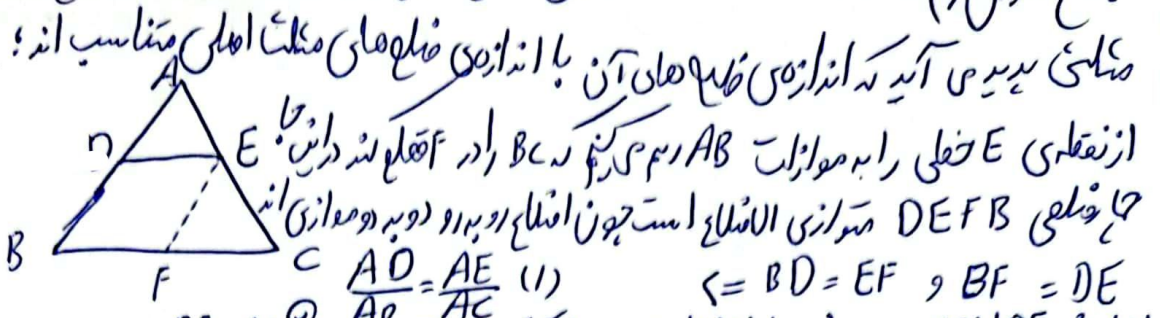 مثلثی پدید می آید که اندازه‌ی ضلع های آن با اندازه‌ی ضلع‌های مثلث اصلی متناسب اند؛
از نقطه‌ی E خطی را به موازات AB رسم می کنیم که BC را در F قطع کند در این جا
چهارضلعی DEFB متوازی الاضلاع است چون اضلاع روبه رو دوبه دو موازی اند
=> BD = EF و BF = DE
(1) AD/AB = AE/AC
A
D
E
B
F
C